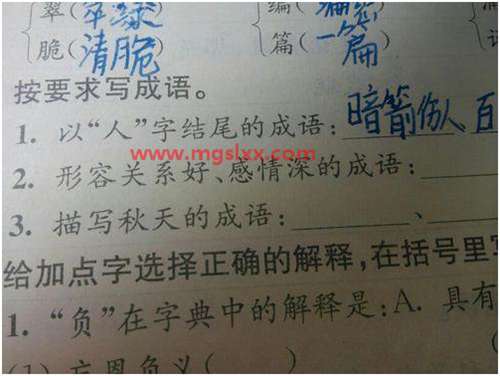 翠(翠绿 编(
脆(清脆) 篇(一篇)
按要求写成语。
1. 以“人”字结尾的成语:暗箭伤人 百
www.mgslxx.com
2. 形容关系好、感情深的成语:
3. 描写秋天的成语: 、
给加点字选择正确的解释,在括号里写
1. “负”在字典中的解释是:A. 具有
(1) 忘恩负义( )